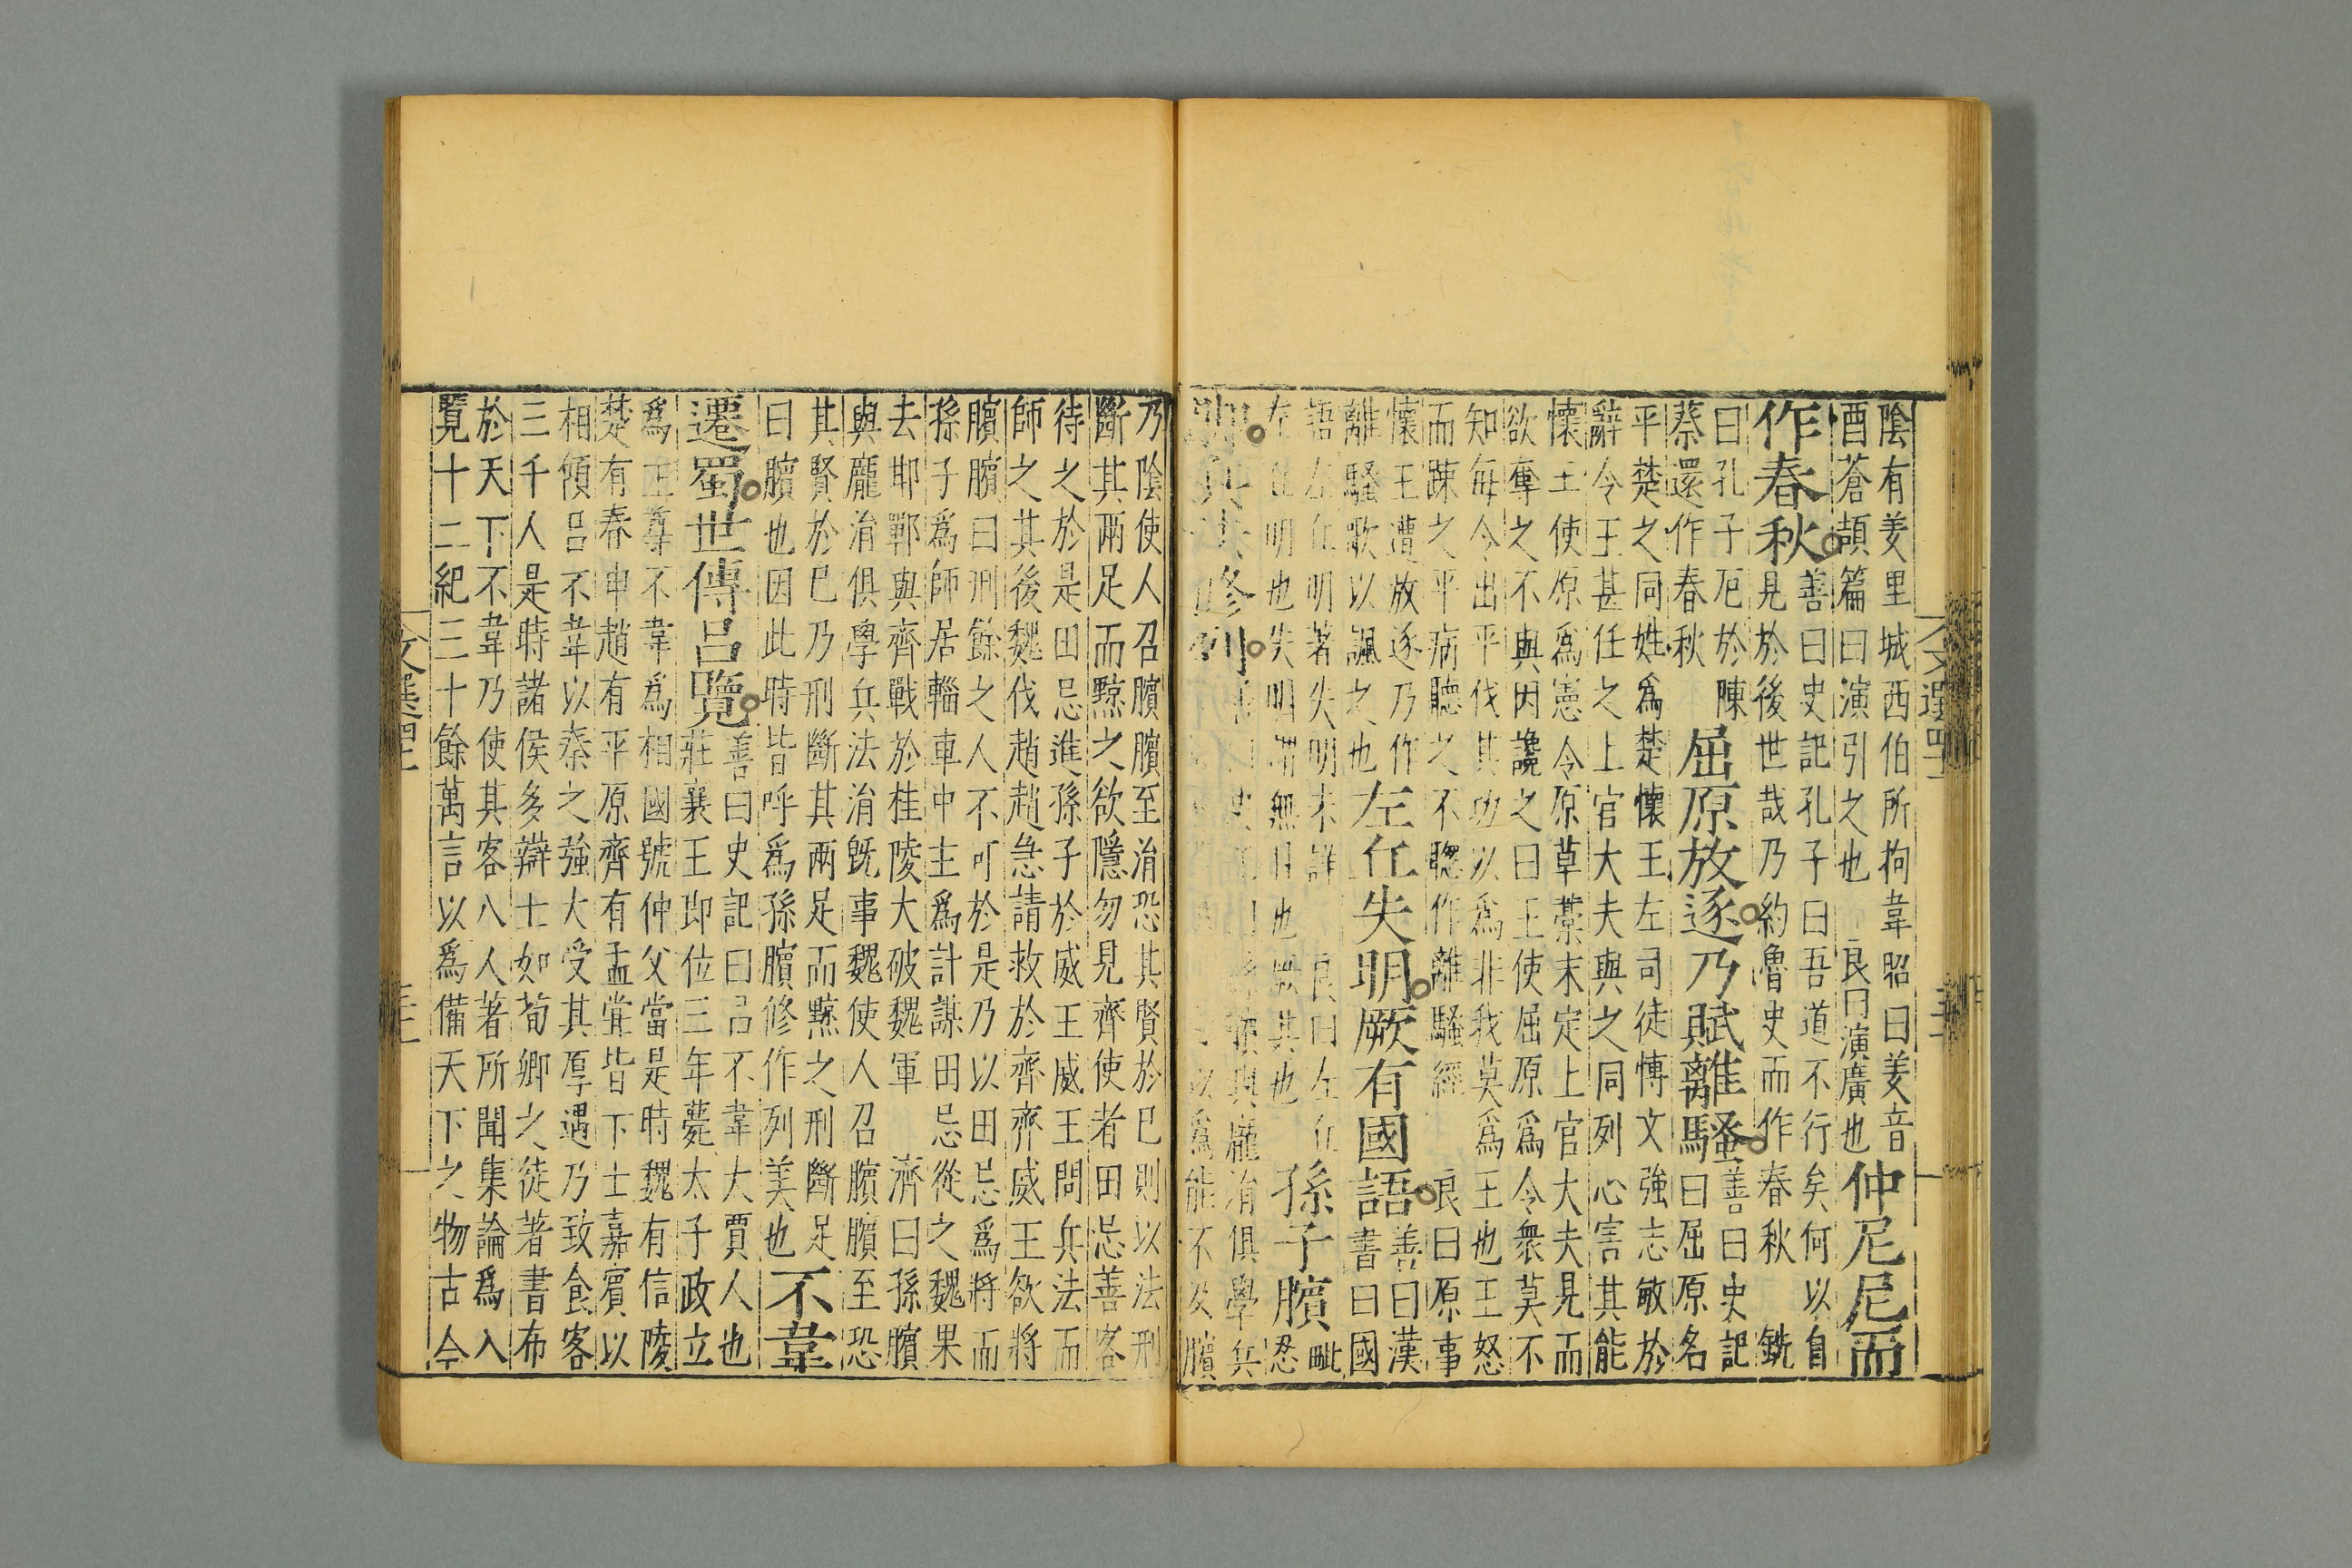 陰有羑里城西伯所拘韋昭曰羑音
酉蒼頡篇曰演引之也 良曰演廣也
仲尼厄而
作春秋
善曰史記孔子曰吾道不行矣何以自
見於後世哉乃約魯史而作春秋 銑
曰孔子厄於陳
蔡還作春秋
屈原放逐乃賦離騷
善曰史記
曰屈原名
平楚之同姓爲楚懷王左司徒博文強志敏於
辭令王甚任之上官大夫與之同列心害其能
懷王使原爲憲令原草藳未定上官大夫見而
欲奪之不與因讒之曰王使屈原爲令衆莫不
知每令出平伐其功以爲非我莫爲王也王怒
而疎之平病聽之不聦作離騷經 良曰原事
懷王遭放逐乃作
離騷歌以諷之也
左丘失明厥有國語
善曰漢
書曰國
語左丘明著失明未詳 良曰左丘
左丘明也失明謂無目也厥其也
孫子臏
毗
忍
脚兵法修列
臏與龐涓俱學兵
以爲能不及臏
乃陰使人召臏臏至涓恐其賢於已則以法刑
斷其兩足而黥之欲隱勿見齊使者田忌善客
待之於是田忌進孫子於威王威王問兵法而
師之其後魏伐趙趙急請救於齊齊威王欲將
臏臏曰刑餘之人不可於是乃以田忌爲將而
孫子爲師居輜車中主爲計謀田忌從之魏果
去邯鄲與齊戰於桂陵大破魏軍 濟曰孫臏
與龐涓俱學兵法涓旣事魏使人召臏臏至恐
其賢於已乃刑斷其兩足而黥之刑斷足
曰臏也因此時皆呼爲孫臏修作列美也
不韋
遷蜀世傳呂覽
善曰史記曰呂不韋大賈人也
莊襄王即位三年薨太子政立
爲王尊不韋爲相國號仲父當是時魏有信陵
楚有春申趙有平原齊有孟甞皆下士嘉賓以
相傾呂不韋以秦之強大受其厚遇乃致食客
三千人是時諸侯多辯士如荀卿之徒著書布
於天下不韋乃使其客人人著所聞集論爲八
覽十二紀三十餘萬言以爲備天下之物古今